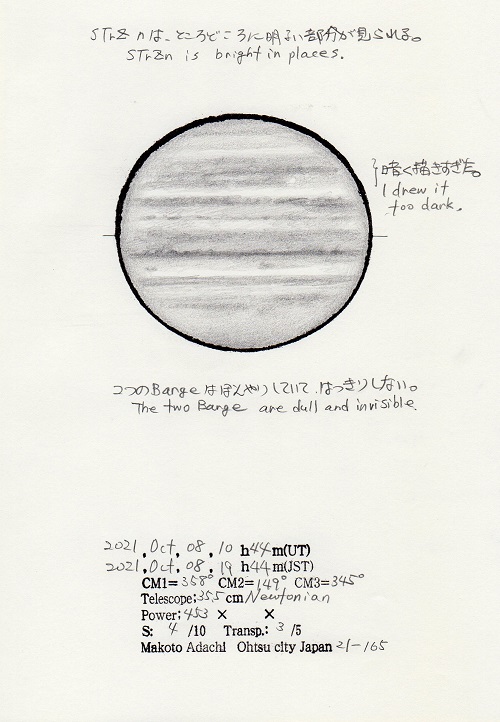 STrZ nは、ところどころに明るい部分が見られる。
STrZn is bright in places.
暗く描きすぎた。
I drew it
too dark.
2つのBangeはぼんやりしていて、はっきりしない。
The two Bange are dull and invisible.
2021, Oct, 08, 10 h44m(UT)
2021, Oct, 08, 19 h44m(JST)
CM1=358° CM2=149° CM3=345°
Telescope:35.5 cm Newtonian
Power:453 × ×
S: 4 /10 Transp.: 3 /5
Makoto Adachi Ohtsu city Japan 21-165